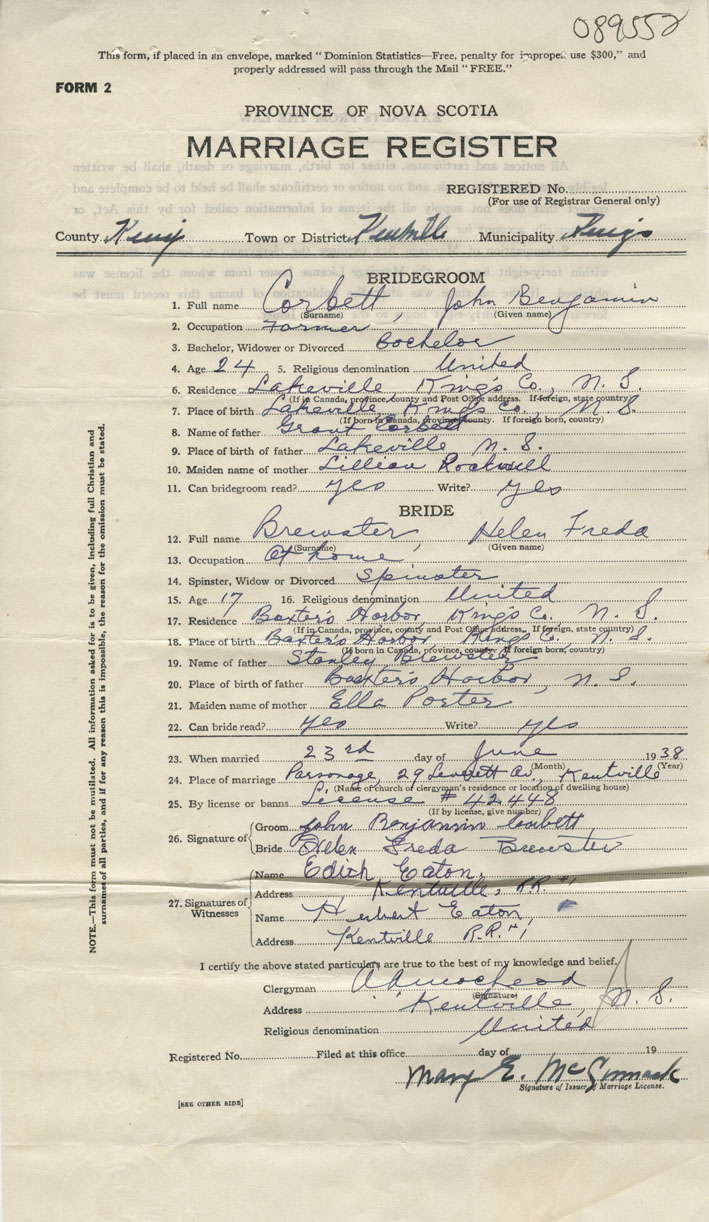 089552
This form, if placed in an envelope, marked "Dominion Statistics—Free, penalty for improper use $300," and
properly addressed will pass through the Mail "FREE."
FORM 2
PROVINCE OF NOVA SCOTIA
MARRIAGE REGISTER
REGISTERED No.
(For use of Registrar General only)
County Kings Town or District Kentville Municipality Kings
BRIDEGROOM
1. Full name Corbett, John Benjamin
(Surname) (Given name)
2. Occupation Farmer
3. Bachelor, Widower or Divorced Bachelor
4. Age 24 5. Religious denomination United
6. Residence Lakeville King's Co., N. S.
(If in Canada, province, county and Post Office address. If foreign, state country)
7. Place of birth Lakeville, King's Co., N. S.
(If born in Canada, province, county. If foreign born, country)
8. Name of father Grant Corbett
9. Place of birth of father Lakeville N. S.
10. Maiden name of mother Lillian Rockwell
11. Can bridegroom read? yes Write? yes
BRIDE
12. Full name Brewster, Helen Freda
(Surname) (Given name)
13. Occupation At home
14. Spinster, Widow or Divorced Spinster
15. Age 17 16. Religious denomination United
17. Residence Baxter's Harbor, King's Co. N. S.
(If in Canada, province, county and Post Office address. If foreign, state country)
18. Place of birth Baxter's Harbor King's Co. N. S.
(If born in Canada, province, county. If foreign born, country)
19. Name of father Stanley Brewster
20. Place of birth of father Baxter's Harbor, N. S.
21. Maiden name of mother Ella Porter
22. Can bride read? yes Write? yes
23. When married 23rd day of June 1938
(Month) (Year)
24. Place of marriage Parsonage, 29 Av., Kentville
(Name of church or clergyman's residence or location of dwelling house)
25. By license or banns License # 42448
(If by license, give number)
26. Signature of Groom John Benjamin Corbett
Bride Helen Freda Brewster
27. Signatures of Witnesses
Name Edith Eaton,
Address Kentville, R.R. #1
Name Herbert Eaton,
Address Kentville R.R. #1
I certify the above stated particulars are true to the best of my knowledge and belief.
Clergyman
(Signature)
Address Kentville, N. S.
Religious denomination United
Registered No. Filed at this office day of 19
Mary E. McCormack
Signature of Issuer of Marriage License.
[SEE OTHER SIDE]
NOTE.—This form must not be mutilated. All information asked for is to be given, including full Christian and
surnames of all parties, and if for any reason this is impossible, the reason for the omission must be stated.